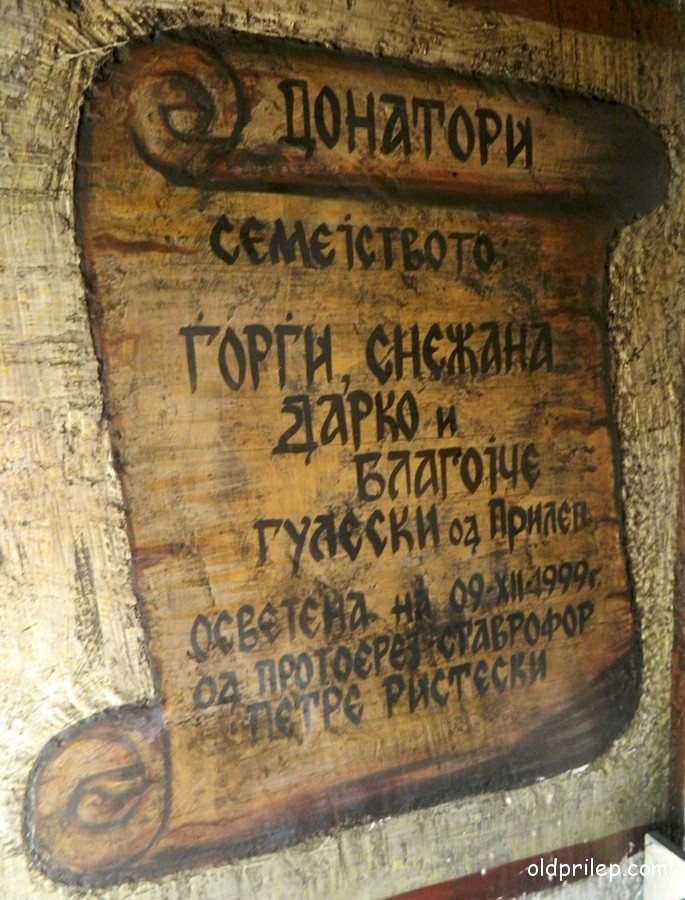 ДОНАТОРИ
СЕМЕЈСТВОТО:
ЃОРЃИ, СНЕЖАНА
ДАРКО и
БЛАГОЈЧЕ
ГУЛЕСКИ од ПРИЛЕП
ОСВЕТЕНА НА 09-XII-1999г.
ОД ПРОТОЕРЕЈ-СТАВРОФОР
ПЕТРЕ РИСТЕСКИ
oldprilep.com